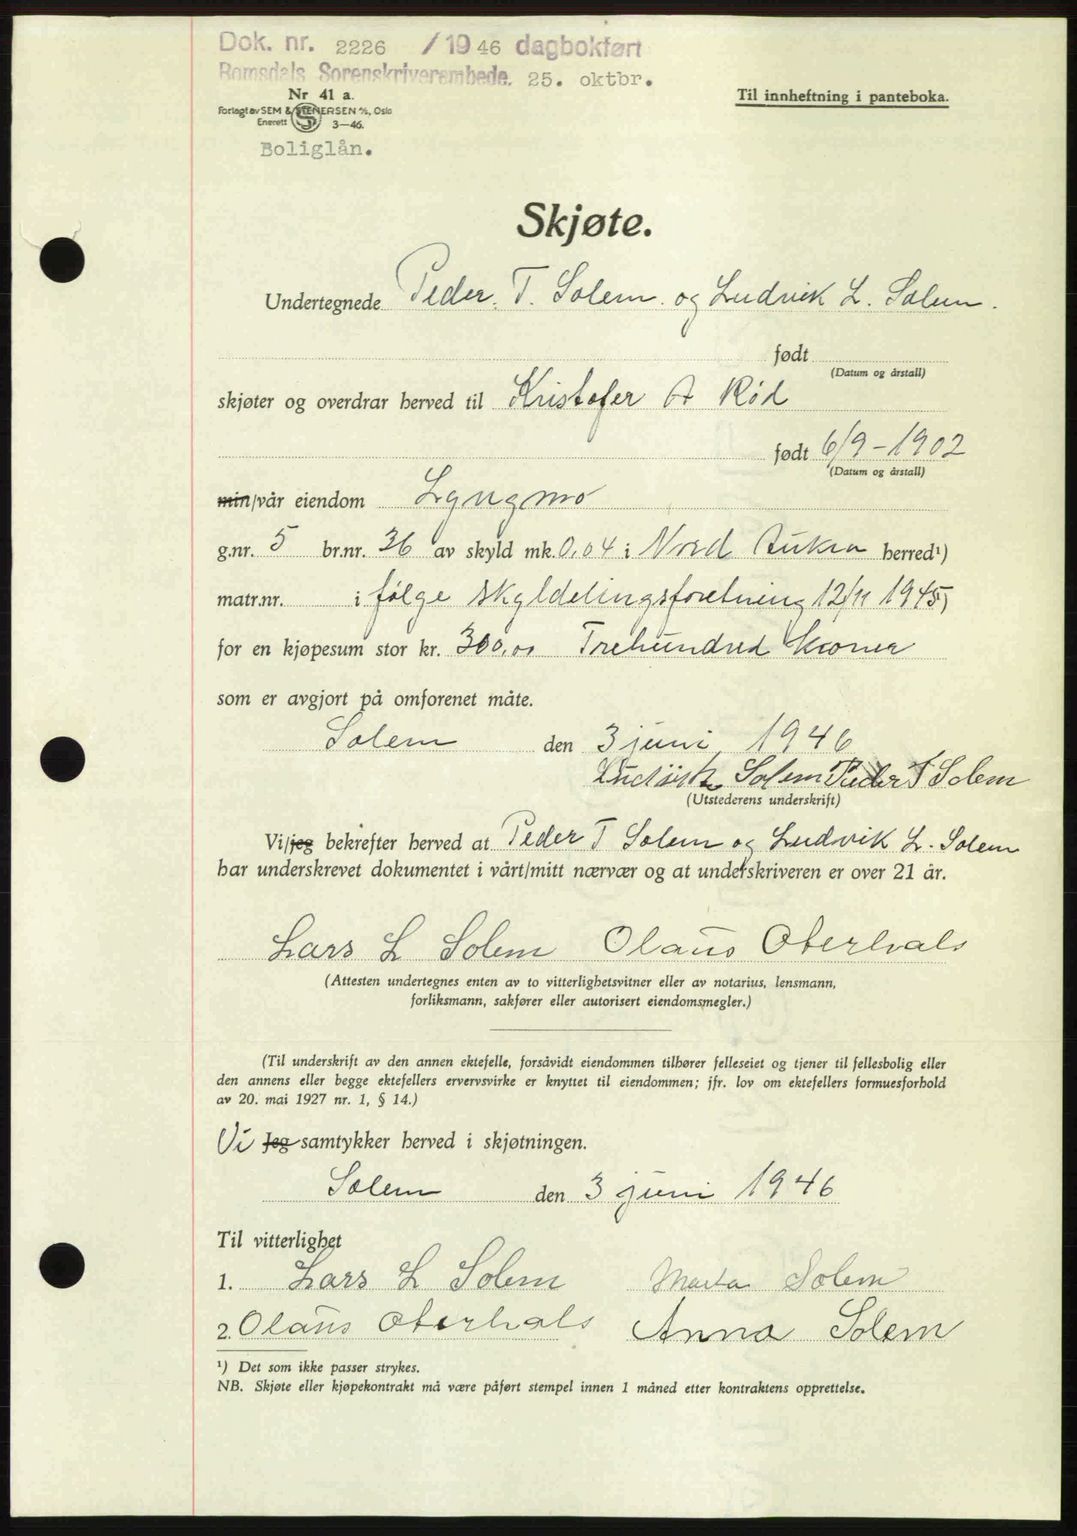 Dok. nr. 2226 /1946 dagbokført
Romsdals Sorenskriverembede. 25. oktbr.
Nr 41 a.
Forlagt av SEM & STENERSEN A/S, Oslo
Enerett S 3—46.
Boliglån.
Til innheftning i panteboka.
Skjøte.
Undertegnede Peder. T. Solem. og Ludvik L. Solem.
født
(Datum og årstall)
skjøter og overdrar herved til Kristofer A Rød
født 6/9-1902
(Datum og årstall)
min/vår eiendom Lyngmo
g.nr. 5 br.nr. 36 av skyld mk. 0,04 i Nord Aukra herred¹)
matr.nr. i følge skyldelingsforetning 12/11 1945)
for en kjøpesum stor kr. 300,00 Trehundred kroner
som er avgjort på omforenet måte.
Solem den 3 juni 1946
Ludvik Solem Peder T Solem
(Utstederens underskrift)
Vi/jeg bekrefter herved at Peder T Solem og Ludvik L. Solem
har underskrevet dokumentet i vårt/mitt nærvær og at underskriveren er over 21 år.
Lars L Solem Olaus Oterhals
(Attesten undertegnes enten av to vitterlighetsvitner eller av notarius, lensmann,
forliksmann, sakfører eller autorisert eiendomsmegler.)
(Til underskrift av den annen ektefelle, forsåvidt eiendommen tilhører felleseiet og tjener til fellesbolig eller
den annens eller begge ektefellers ervervsvirke er knyttet til eiendommen; jfr. lov om ektefellers formuesforhold
av 20. mai 1927 nr. 1, § 14.)
Vi Jeg samtykker herved i skjøtningen.
Solem den 3 juni 1946
Til vitterlighet
1. Lars L Solem Marta Solem
2. Olaus Oterhals Anna Solem
¹) Det som ikke passer strykes.
NB. Skjøte eller kjøpekontrakt må være påført stempel innen 1 måned etter kontraktens opprettelse.